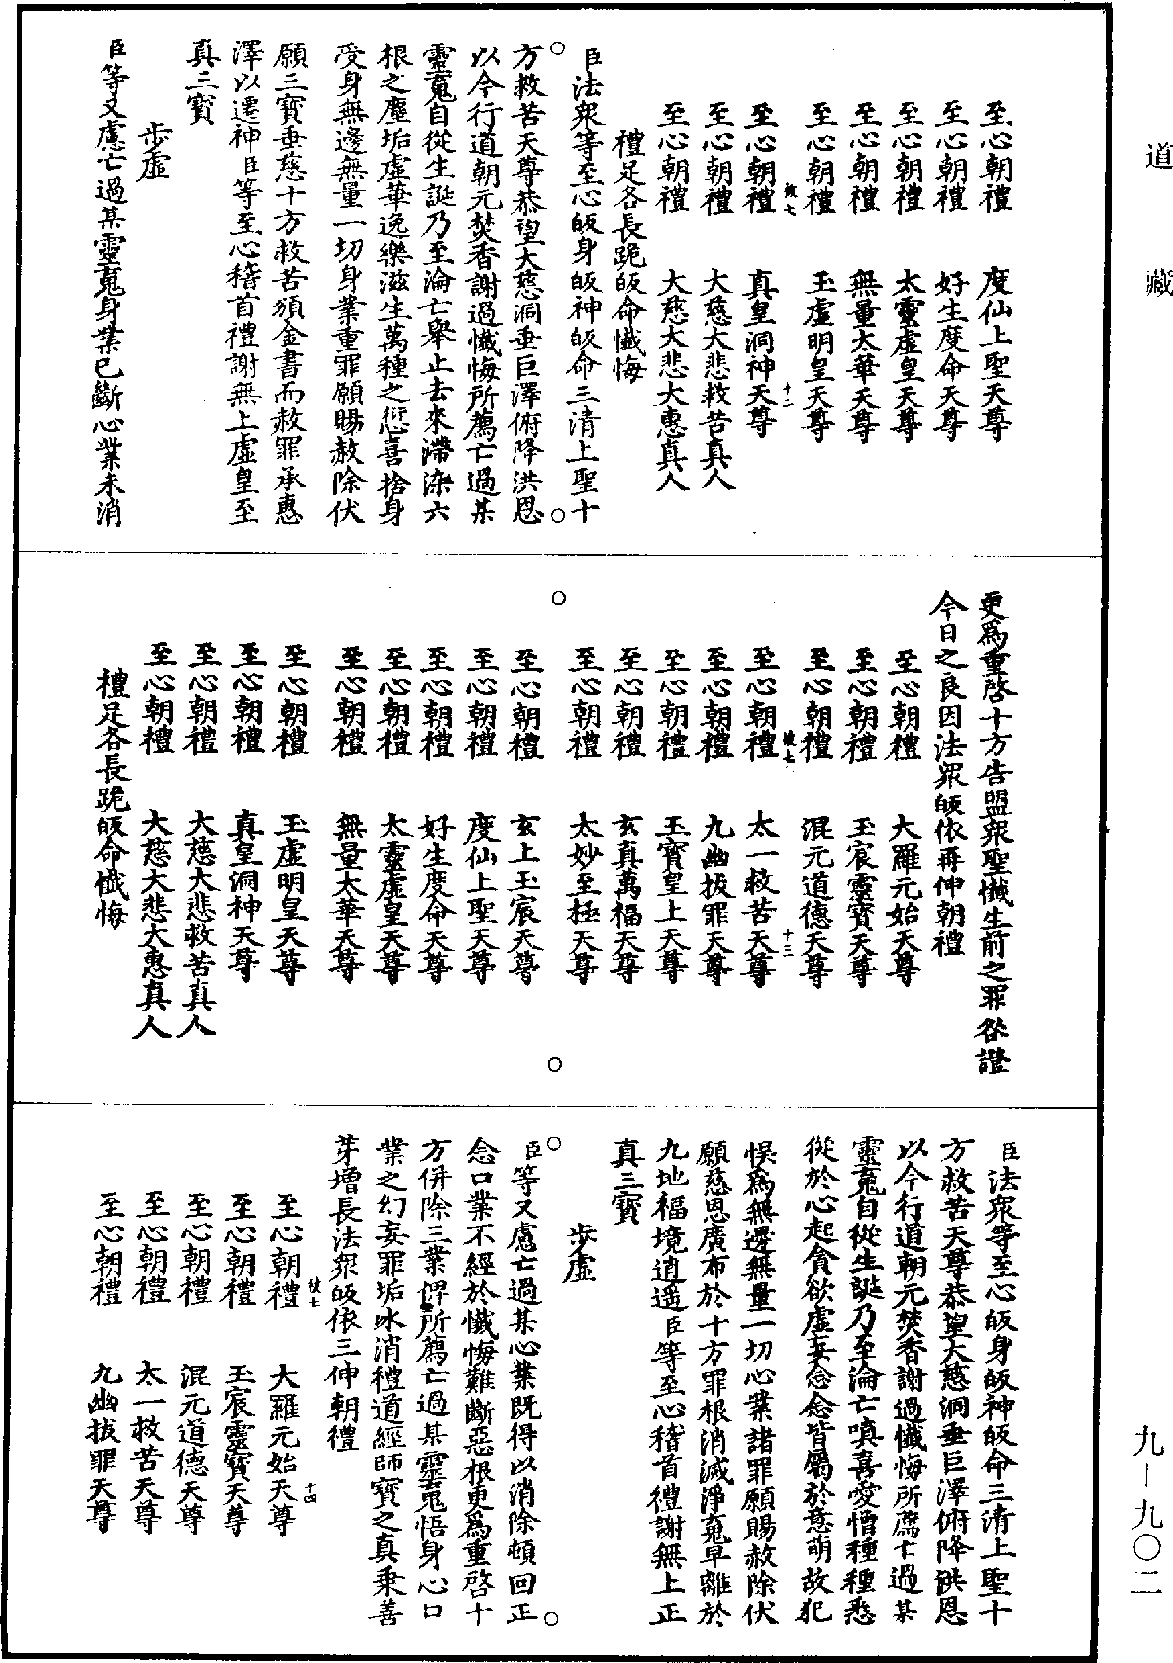 道藏
至心朝禮 度仙上聖天尊
至心朝禮 好生度命天尊
至心朝禮 太靈虛皇天尊
至心朝禮 無量太華天尊
至心朝禮 玉虛明皇天尊
被七 十二
至心朝禮 真皇洞神天尊
至心朝禮 大慈大悲救苦真人
至心朝禮 大慈大悲大惠真人
禮足各長跪皈命懺悔
臣法衆等至心皈身皈神皈命三清上聖十
方救苦天尊恭望大慈洞垂巨澤俯降洪恩
以今行道朝元焚香謝過懺悔所薦亡過某
靈䰟自從生誕乃至淪亡舉止去來滯染六
根之塵垢虛華逸樂滋生萬種之愆喜捨身
受身無邊無量一切身業重罪願賜赦除伏
願三寶垂慈十方救苦頒金書而赦罪承惠
澤以遷神臣等至心稽首禮謝無上虛皇至
真三寶
步虛
臣等又慮亡過某靈䰟身業已斷心業未消
更爲重啓十方告盟衆聖懺生前之罪咎證
今日之良因法衆皈依再伸朝禮
至心朝禮 大羅元始天尊
至心朝禮 玉宸靈寶天尊
至心朝禮 混元道德天尊
被七 十三
至心朝禮 太一救苦天尊
至心朝禮 九幽拔罪天尊
至心朝禮 玉寶皇上天尊
至心朝禮 玄真萬福天尊
至心朝禮 太妙至極天尊
至心朝禮 玄上玉宸天尊
至心朝禮 度仙上聖天尊
至心朝禮 好生度命天尊
至心朝禮 太靈虛皇天尊
至心朝禮 無量太華天尊
至心朝禮 玉虛明皇天尊
至心朝禮 真皇洞神天尊
至心朝禮 大慈大悲救苦真人
至心朝禮 大慈大悲大惠真人
禮足各長跪皈命懺悔
臣法衆等至心皈身皈神皈命三清上聖十
方救苦天尊恭望大慈洞垂巨澤俯降洪恩
以今行道朝元焚香謝過懺悔所薦亡過某
靈䰟自從生誕乃至淪亡嗔喜愛憎種種悉
從於心起貪欲虛妄念念皆屬於意萌故犯
悮爲無邊無量一切心業諸罪願賜赦除伏
願慈恩廣布於十方罪根消滅淨䰟早離於
九地福境逍遥臣等至心稽首禮謝無上正
真三寶
步虛
臣等又慮亡過某心業既得以消除頓回正
念口業不經於懺悔難斷惡根更爲重啓十
方併除三業俾所薦亡過某靈䰟悟身心口
業之幻妄罪垢冰消禮道經師寶之真秉善
芽增長法衆皈依三伸朝禮
被七 十四
至心朝禮 大羅元始天尊
至心朝禮 玉宸靈寶天尊
至心朝禮 混元道德天尊
至心朝禮 太一救苦天尊
至心朝禮 九幽拔罪天尊
九—九〇二